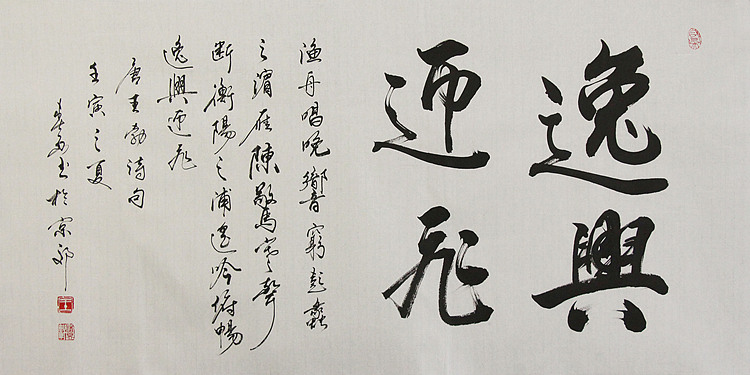 逸興
遄飛
漁舟唱晚響窮彭蠡
之濱雁陳驚寒聲
斷衡陽之浦遥吟俯暢
逸興遄飛
唐王勃詩句
壬寅之夏
書於京郊